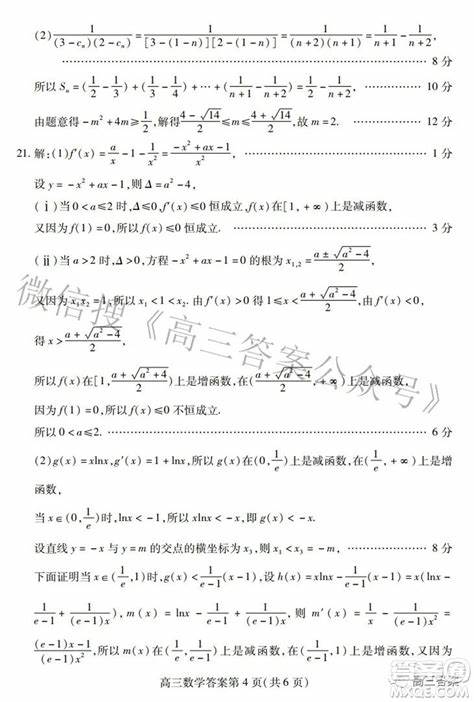 (2) 1/((3-cₙ)(2-cₙ)) = 1/([3-(1-n)][2-(1-n)]) = 1/((n+2)(n+1)) = 1/(n+1) - 1/(n+2),
…… 8 分
所以 Sₙ=(1/2-1/3)+(1/3-1/4)+…+(1/(n+1)-1/(n+2))=1/2-1/(n+2). …… 10 分
由题意得-m²+4m≥1/2,解得(4-√14)/2≤m≤(4+√14)/2,故 m=2. …… 12 分
21. 解:(1)f′(x)=a/x-1-1/x²=(-x²+ax-1)/x², …… 1 分
设 y=-x²+ax-1,则 Δ=a²-4,
(ⅰ)当 0<a≤2 时,Δ≤0,f′(x)≤0 恒成立,f(x)在[1,+∞)上是减函数,
又因为 f(1)=0,所以 f(x)≤0 恒成立. …… 3 分
(ⅱ)当 a>2 时,Δ>0,方程-x²+ax-1=0 的根为 x₁,₂=(a±√(a²-4))/2,
又因为 x₁x₂=1,所以 x₁<1<x₂. 由 f′(x)>0 得 1≤x<(a+√(a²-4))/2, 由 f′(x)<0,
得 x>(a+√(a²-4))/2,
所以 f(x)在[1,(a+√(a²-4))/2)上是增函数,在((a+√(a²-4))/2,+∞)上是减函数,
因为 f(1)=0,所以 f(x)≤0 不恒成立.
所以 0<a≤2. …… 6 分
(2)g(x)=xlnx,g′(x)=1+lnx,所以 g(x)在(0,1/e)上是减函数,在(1/e,+∞)上是增
函数,
当 x∈(0,1/e)时,lnx<-1,所以 xlnx<-x,即 g(x)<-x.
设直线 y=-x 与 y=m 的交点的横坐标为 x₃,则 x₁<x₃=-m, …… 8 分
下面证明当 x∈(1/e,1)时,g(x)<1/(e-1)(x-1),设 h(x)=xlnx-1/(e-1)(x-1)=x(lnx-
1/(e-1)+1/((e-1)x)), m(x)=lnx-1/(e-1)+1/((e-1)x), 则 m′(x)=1/x-1/((e-1)x²)=
((e-1)x-1)/((e-1)x²), 所以 m(x)在(1/e,1/(e-1))上是减函数,在(1/(e-1),1)上是增函数,
高三数学答案第 4 页(共 6 页)
微信搜《高三答案公众号》
高三答案